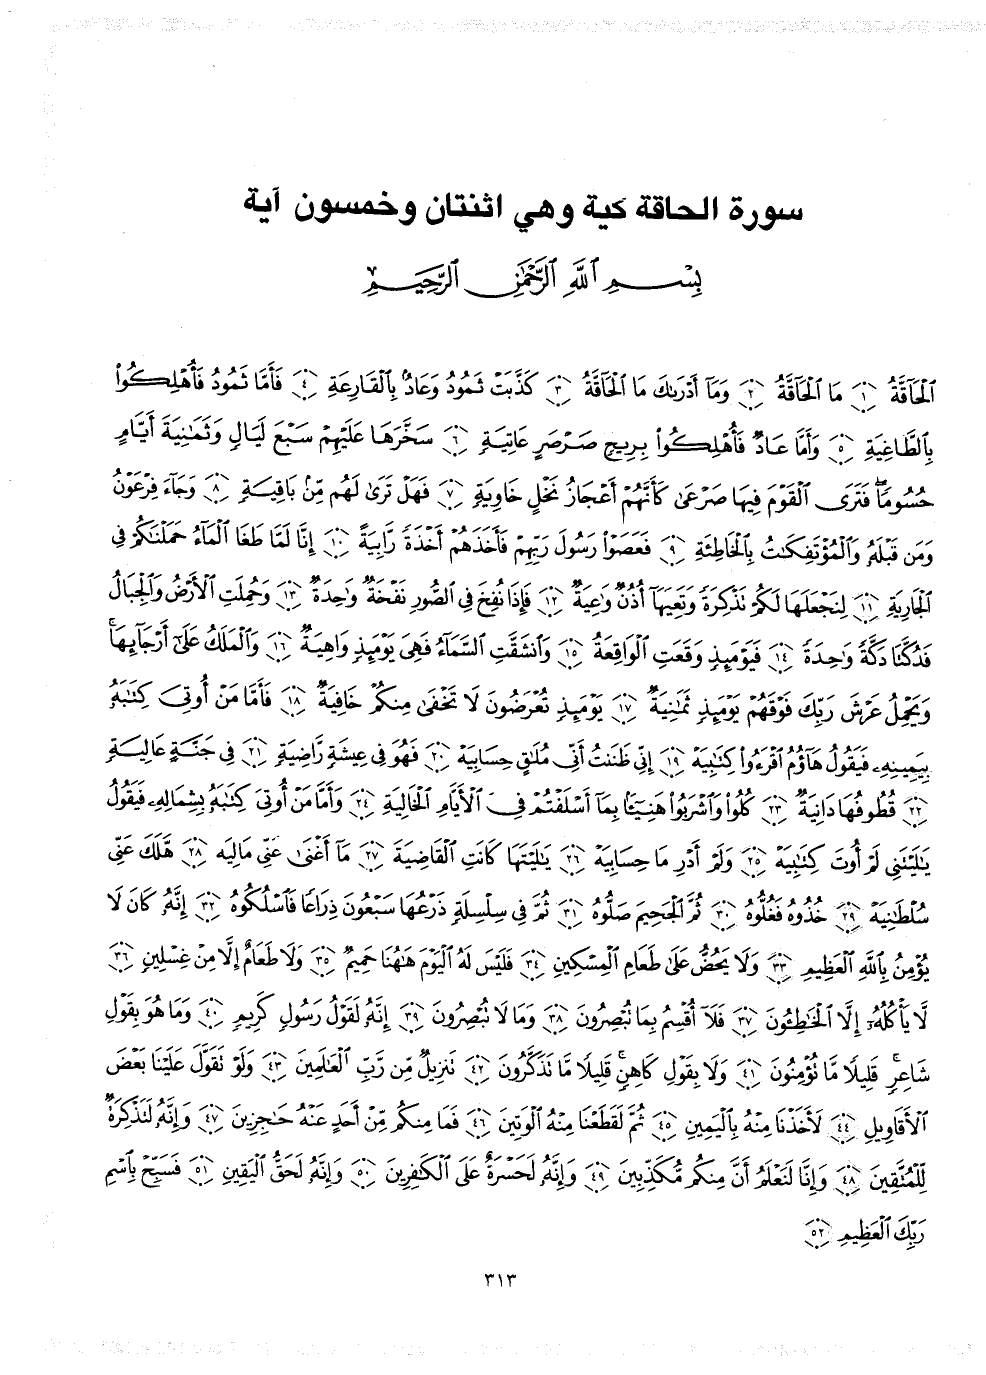 سورة الحاقة كية وهي اثنتان وخمسون آية
بِسْمِ ٱللَّهِ ٱلرَّحْمَٰنِ ٱلرَّحِيمِ
ٱلْحَاقَّةُ ١ مَا ٱلْحَاقَّةُ ٢ وَمَآ أَدْرَىٰكَ مَا ٱلْحَاقَّةُ ٣ كَذَّبَتْ ثَمُودُ وَعَادٌۢ بِٱلْقَارِعَةِ ٤ فَأَمَّا ثَمُودُ فَأُهْلِكُوا۟
بِٱلطَّاغِيَةِ ٥ وَأَمَّا عَادٌ فَأُهْلِكُوا۟ بِرِيحٍ صَرْصَرٍ عَاتِيَةٍ ٦ سَخَّرَهَا عَلَيْهِمْ سَبْعَ لَيَالٍ وَثَمَٰنِيَةَ أَيَّامٍ
حُسُومًا ۖ فَتَرَى ٱلْقَوْمَ فِيهَا صَرْعَىٰ كَأَنَّهُمْ أَعْجَازُ نَخْلٍ خَاوِيَةٍ ٧ فَهَلْ تَرَىٰ لَهُم مِّنۢ بَاقِيَةٍ ٨ وَجَآءَ فِرْعَوْنُ
وَمَن قَبْلَهُۥ وَٱلْمُؤْتَفِكَٰتُ بِٱلْخَاطِئَةِ ٩ فَعَصَوْا۟ رَسُولَ رَبِّهِمْ فَأَخَذَهُمْ أَخْذَةً رَّابِيَةً ١٠ إِنَّا لَمَّا طَغَا ٱلْمَآءُ حَمَلْنَٰكُمْ فِى
ٱلْجَارِيَةِ ١١ لِنَجْعَلَهَا لَكُمْ تَذْكِرَةً وَتَعِيَهَآ أُذُنٌ وَٰعِيَةٌ ١٢ فَإِذَا نُفِخَ فِى ٱلصُّورِ نَفْخَةٌ وَٰحِدَةٌ ١٣ وَحُمِلَتِ ٱلْأَرْضُ وَٱلْجِبَالُ
فَدُكَّتَا دَكَّةً وَٰحِدَةً ١٤ فَيَوْمَئِذٍ وَقَعَتِ ٱلْوَاقِعَةُ ١٥ وَٱنشَقَّتِ ٱلسَّمَآءُ فَهِىَ يَوْمَئِذٍ وَاهِيَةٌ ١٦ وَٱلْمَلَكُ عَلَىٰٓ أَرْجَآئِهَا ۚ
وَيَحْمِلُ عَرْشَ رَبِّكَ فَوْقَهُمْ يَوْمَئِذٍ ثَمَٰنِيَةٌ ١٧ يَوْمَئِذٍ تُعْرَضُونَ لَا تَخْفَىٰ مِنكُمْ خَافِيَةٌ ١٨ فَأَمَّا مَنْ أُوتِىَ كِتَٰبَهُۥ
بِيَمِينِهِۦ فَيَقُولُ هَآؤُمُ ٱقْرَءُوا۟ كِتَٰبِيَهْ ١٩ إِنِّى ظَنَنتُ أَنِّى مُلَٰقٍ حِسَابِيَهْ ٢٠ فَهُوَ فِى عِيشَةٍ رَّاضِيَةٍ ٢١ فِى جَنَّةٍ عَالِيَةٍ
٢٢ قُطُوفُهَا دَانِيَةٌ ٢٣ كُلُوا۟ وَٱشْرَبُوا۟ هَنِيٓـًٔۢا بِمَآ أَسْلَفْتُمْ فِى ٱلْأَيَّامِ ٱلْخَالِيَةِ ٢٤ وَأَمَّا مَنْ أُوتِىَ كِتَٰبَهُۥ بِشِمَالِهِۦ فَيَقُولُ
يَٰلَيْتَنِى لَمْ أُوتَ كِتَٰبِيَهْ ٢٥ وَلَمْ أَدْرِ مَا حِسَابِيَهْ ٢٦ يَٰلَيْتَهَا كَانَتِ ٱلْقَاضِيَةَ ٢٧ مَآ أَغْنَىٰ عَنِّى مَالِيَهْ ٢٨ هَلَكَ عَنِّى
سُلْطَٰنِيَهْ ٢٩ خُذُوهُ فَغُلُّوهُ ٣٠ ثُمَّ ٱلْجَحِيمَ صَلُّوهُ ٣١ ثُمَّ فِى سِلْسِلَةٍ ذَرْعُهَا سَبْعُونَ ذِرَاعًا فَٱسْلُكُوهُ ٣٢ إِنَّهُۥ كَانَ لَا
يُؤْمِنُ بِٱللَّهِ ٱلْعَظِيمِ ٣٣ وَلَا يَحُضُّ عَلَىٰ طَعَامِ ٱلْمِسْكِينِ ٣٤ فَلَيْسَ لَهُ ٱلْيَوْمَ هَٰهُنَا حَمِيمٌ ٣٥ وَلَا طَعَامٌ إِلَّا مِنْ غِسْلِينٍ ٣٦
لَّا يَأْكُلُهُۥٓ إِلَّا ٱلْخَٰطِـُٔونَ ٣٧ فَلَآ أُقْسِمُ بِمَا تُبْصِرُونَ ٣٨ وَمَا لَا تُبْصِرُونَ ٣٩ إِنَّهُۥ لَقَوْلُ رَسُولٍ كَرِيمٍ ٤٠ وَمَا هُوَ بِقَوْلِ
شَاعِرٍ ۚ قَلِيلًا مَّا تُؤْمِنُونَ ٤١ وَلَا بِقَوْلِ كَاهِنٍ ۚ قَلِيلًا مَّا تَذَكَّرُونَ ٤٢ تَنزِيلٌ مِّن رَّبِّ ٱلْعَٰلَمِينَ ٤٣ وَلَوْ تَقَوَّلَ عَلَيْنَا بَعْضَ
ٱلْأَقَاوِيلِ ٤٤ لَأَخَذْنَا مِنْهُ بِٱلْيَمِينِ ٤٥ ثُمَّ لَقَطَعْنَا مِنْهُ ٱلْوَتِينَ ٤٦ فَمَا مِنكُم مِّنْ أَحَدٍ عَنْهُ حَٰجِزِينَ ٤٧ وَإِنَّهُۥ لَتَذْكِرَةٌ
لِّلْمُتَّقِينَ ٤٨ وَإِنَّا لَنَعْلَمُ أَنَّ مِنكُم مُّكَذِّبِينَ ٤٩ وَإِنَّهُۥ لَحَسْرَةٌ عَلَى ٱلْكَٰفِرِينَ ٥٠ وَإِنَّهُۥ لَحَقُّ ٱلْيَقِينِ ٥١ فَسَبِّحْ بِٱسْمِ
رَبِّكَ ٱلْعَظِيمِ ٥٢
٣١٣